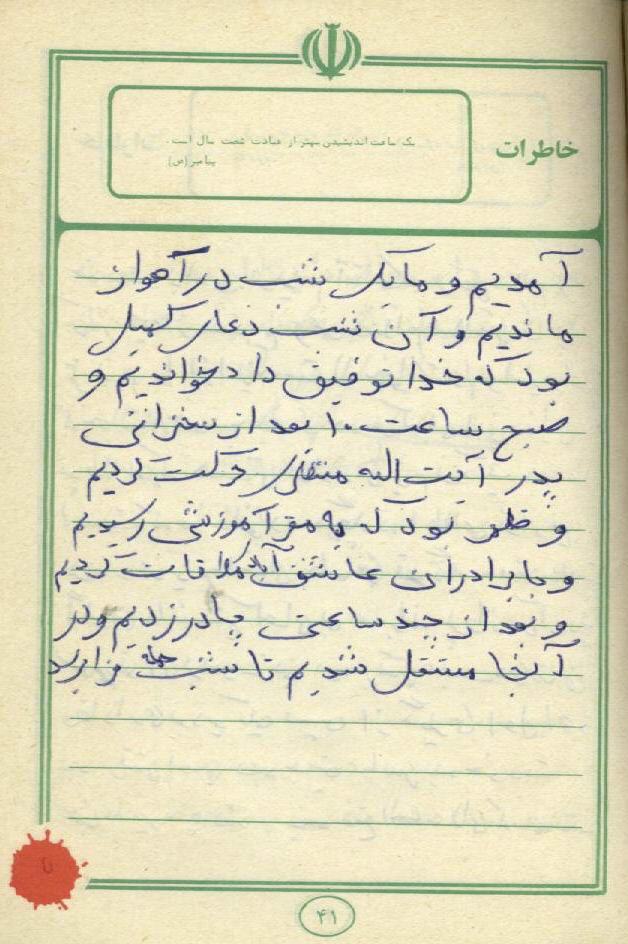 خاطرات
یک ساعت اندیشیدن بهتر از عبادت شصت سال است.
پیامبر (ص)
آمدیم و ما یک شب در آهواز
ماندیم و آن شب دعای کمیل
بود که خدا توفیق داد خواندیم و
صبح ساعت ۱۰ بعد از سخنرانی
پدر آیت الله منتظری حرکت کردیم
و ظهر بود که به مقر آموزشی رسیدیم
و با برادران عاشق آباد ملاقات کردیم
و بعد از چند ساعتی چادر زدیم و در
آنجا مستقل شدیم تا شب حمله فرا رسد
۴۱